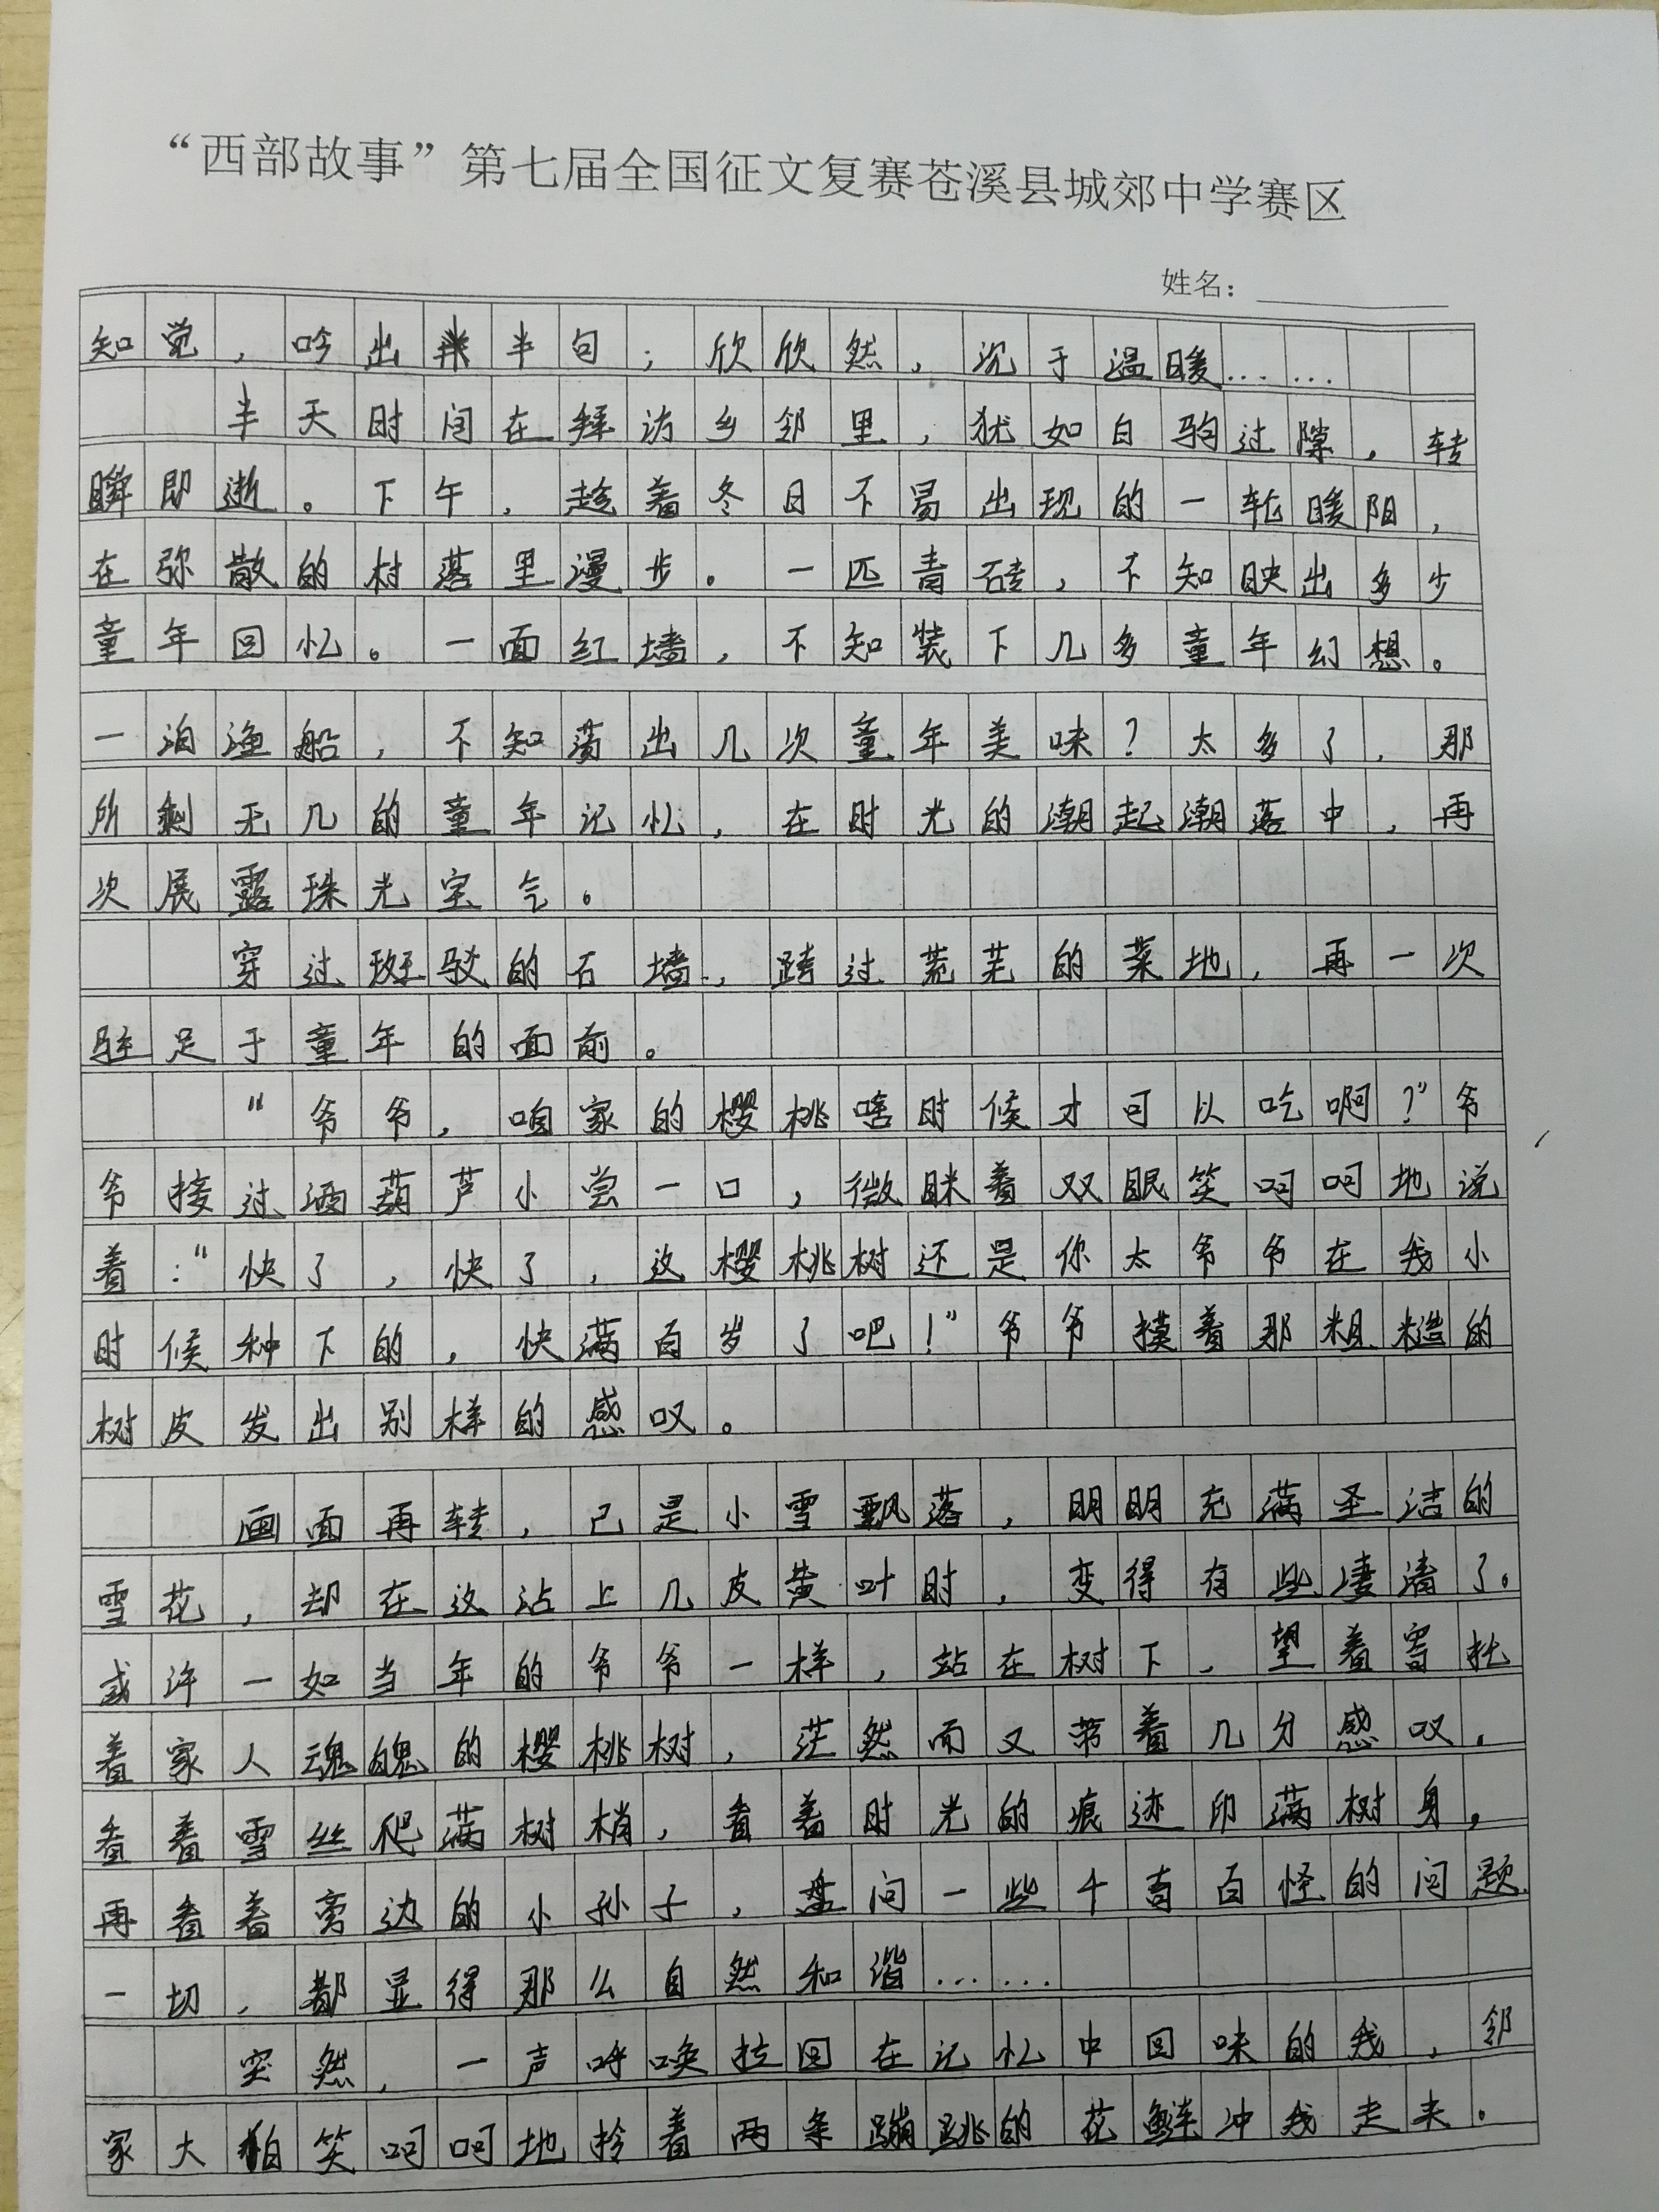 “西部故事”第七届全国征文复赛苍溪县城郊中学赛区
姓名：
知觉，吟出半句；欣欣然，沉于温暖……
半天时间在拜访乡邻里，犹如白驹过隙，转
瞬即逝。下午，趁着冬日不易出现的一轮暖阳，
在弥散的村落里漫步。一匹青砖，不知映出多少
童年回忆。一面红墙，不知装下几多童年幻想。
一泊渔船，不知荡出几次童年美味？太多了，那
所剩无几的童年记忆，在时光的潮起潮落中，再
次展露珠光宝气。
穿过斑驳的石墙，跨过荒芜的菜地，再一次
驻足于童年的面前。
“爷爷，咱家的樱桃啥时候才可以吃啊？”爷
爷接过酒葫芦小尝一口，微眯着双眼笑呵呵地说
着：“快了，快了，这樱桃树还是你太爷爷在我小
时候种下的，快满百岁了吧！”爷爷摸着那粗糙的
树皮发出别样的感叹。
画面再转，已是小雪飘落，明明充满圣洁的
雪花，却在这沾上几皮黄叶时，变得有些凄清了。
或许一如当年的爷爷一样，站在树下，望着寄托
着家人魂魄的樱桃树，茫然而又带着几分感叹，
看着雪丝爬满树梢，看着时光的痕迹印满树身，
再看着旁边的小孙子，盘问一些千奇百怪的问题，
一切，都显得那么自然和谐……
突然，一声呼唤拉回在记忆中回味的我，邻
家大伯笑呵呵地拎着两条蹦跳的花鲢冲我走来。